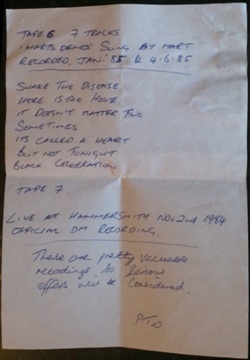 TAPE 6 7 TRACKS
MARTS DEMOS SUNG BY MART
RECORDED JAN: 85 & 4-6-85
SHAKE THE DISEASE
HERE IS THE HOUSE
IT DOESN'T MATTER TWO
SOMETIMES
ITS CALLED A HEART
BUT NOT TONIGHT
BLACK CELEBRATION
TAPE 7.
LIVE AT HAMMERSMITH NOV 2nd 1984
OFFICIAL DM RECORDING.
These are pretty valuable
recordings. So serious
offers will be considered.
PTO